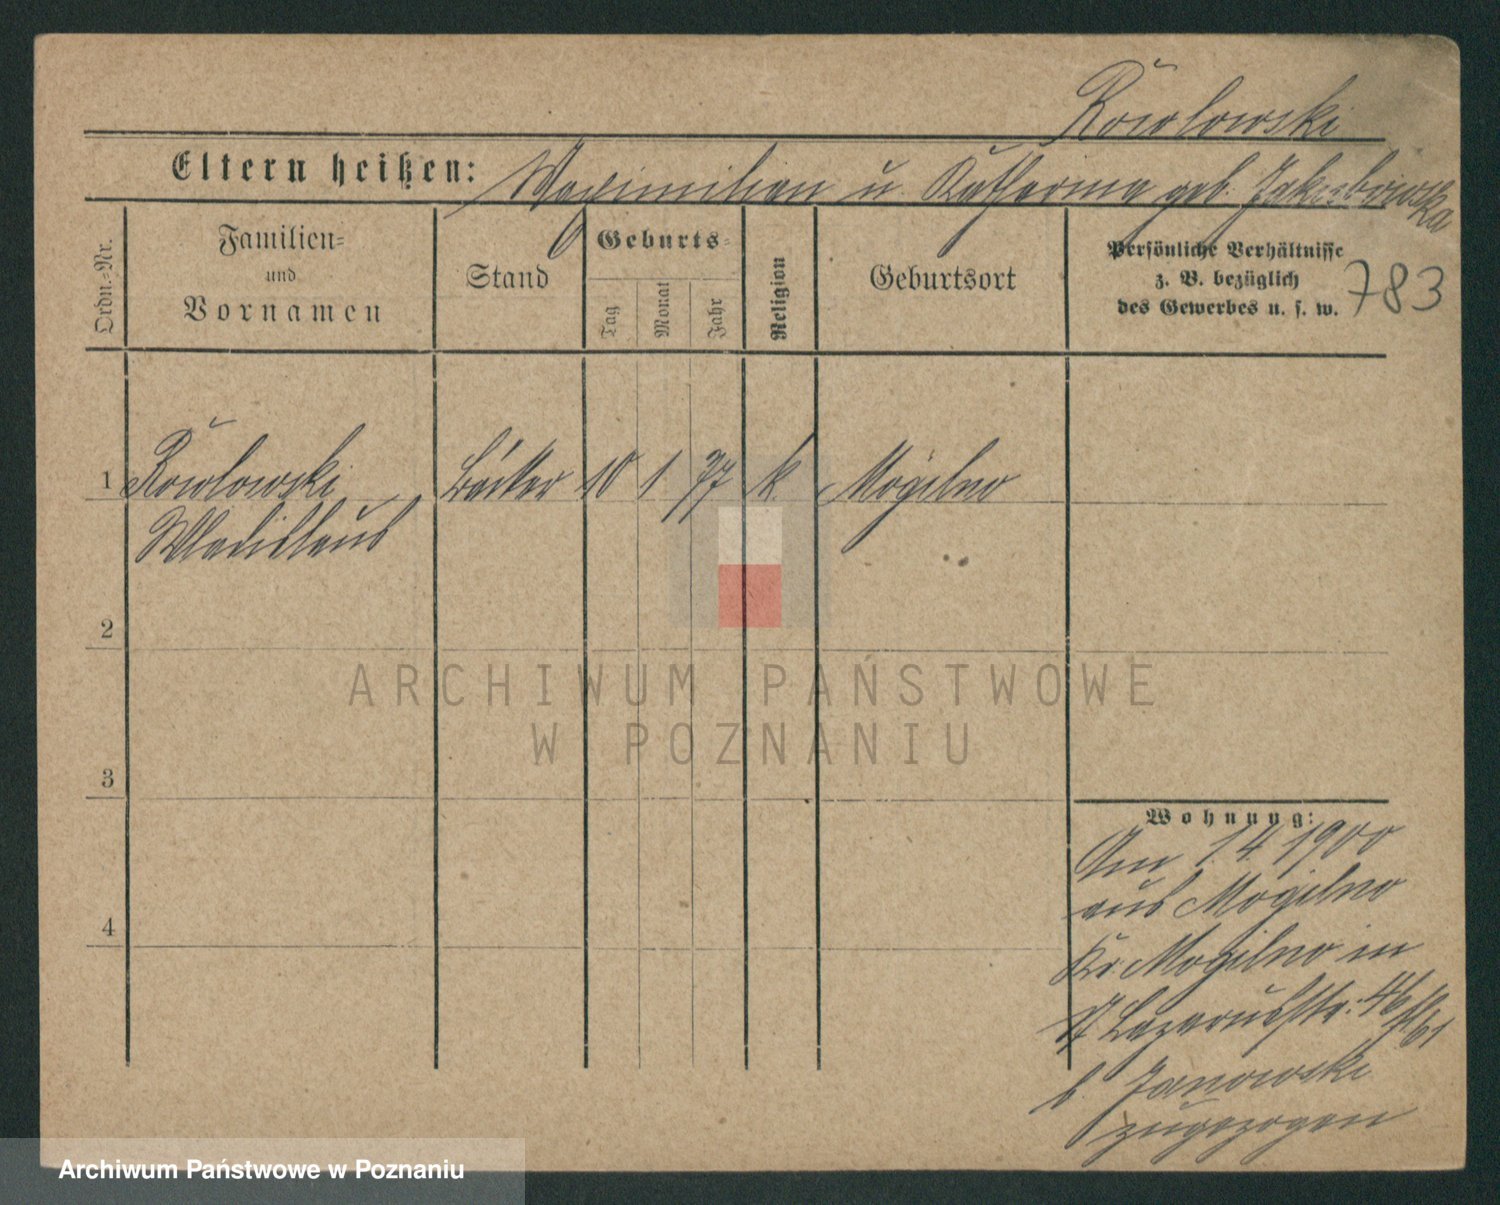 Rowlowski
Eltern heißen: Maximilian u Katharina geb. Jakubowska
Ordn.-Nr.
Familien-
und
Vornamen
Stand
Geburts-
Tag
Monat
Jahr
Religion
Geburtsort
Persönliche Verhältnisse
z. B. bezüglich
des Gewerbes u. s. w.
783
1 Rowlowski Bäcker 10 1 77 k. Mogilno
Wladislaus
2
ARCHIWUM PAŃSTWOWE
W POZNANIU
3
Wohnung:
Am 1.4.1900
aus Mogilno
4
Kr. Mogilno in
Lazarusstr. 46
b. Janowski
zugezogen
Archiwum Państwowe w Poznaniu